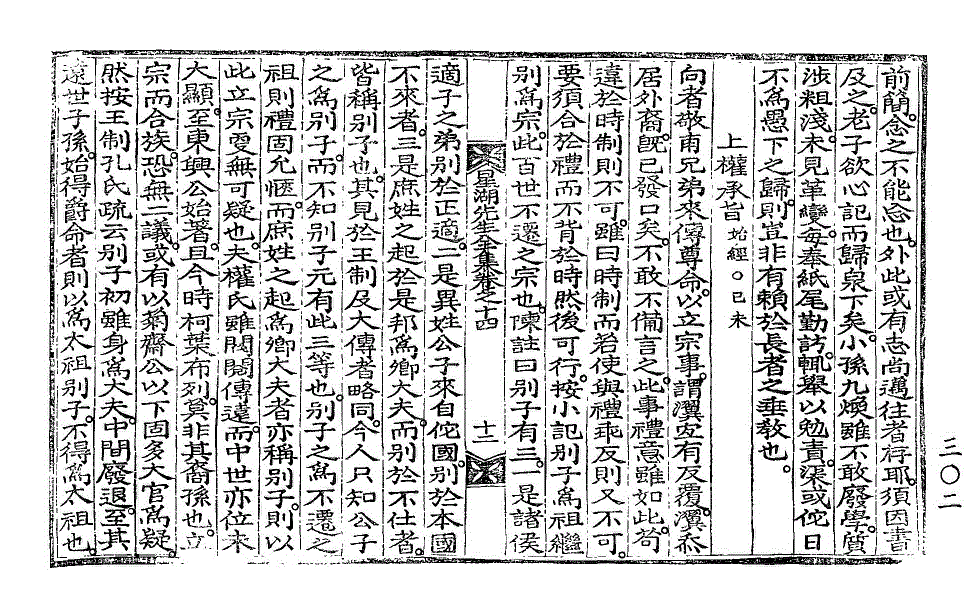 前簡。念之不能忘也。外此或有志尚邁往者存耶。須因書
及之。老子欲心記而歸泉下矣。小孫九煥雖不敢廢學。質
涉粗淺。未見革變。每奉紙尾勤訪。輒擧以勉責。渠或佗日
不爲愚下之歸。則豈非有賴於長者之垂敎也。
上權承旨 始經○己未
向者敬甫兄弟來傳尊命。以立宗事。謂瀷宜有反覆。瀷忝
居外裔。旣已發口矣。不敢不備言之。此事禮意雖如此。苟
違於時制則不可。雖曰時制而若使與禮乖反則又不可。
要須合於禮而不背於時然後可行。按小記別子爲祖繼
別爲宗。此百世不遷之宗也。陳註曰別子有三。一是諸侯
星湖先生全集卷之十四
十二
適子之弟別於正適。二是異姓公子來自佗國。別於本國
不來者。三是庶姓之起於是邦爲卿大夫。而別於不仕者。
皆稱別子也。其見於王制及大傳者略同。今人只知公子
之爲別子。而不知別子元有此三等也。別子之爲不遷之
祖則禮固允愜。而庶姓之起爲卿大夫者亦稱別子。則以
此立宗。更無可疑也。夫權氏雖閥閱傳遠。而中世亦位未
大顯。至東興公始著。且今時柯葉布列。莫非其裔孫也。立
宗而合族。恐無二議。或有以菊齋公以下固多大官爲疑。
然按王制孔氏疏云別子初雖身爲大夫。中間廢退。至其
遠世子孫。始得爵命者則以爲太祖別子。不得爲太祖也。
三〇二